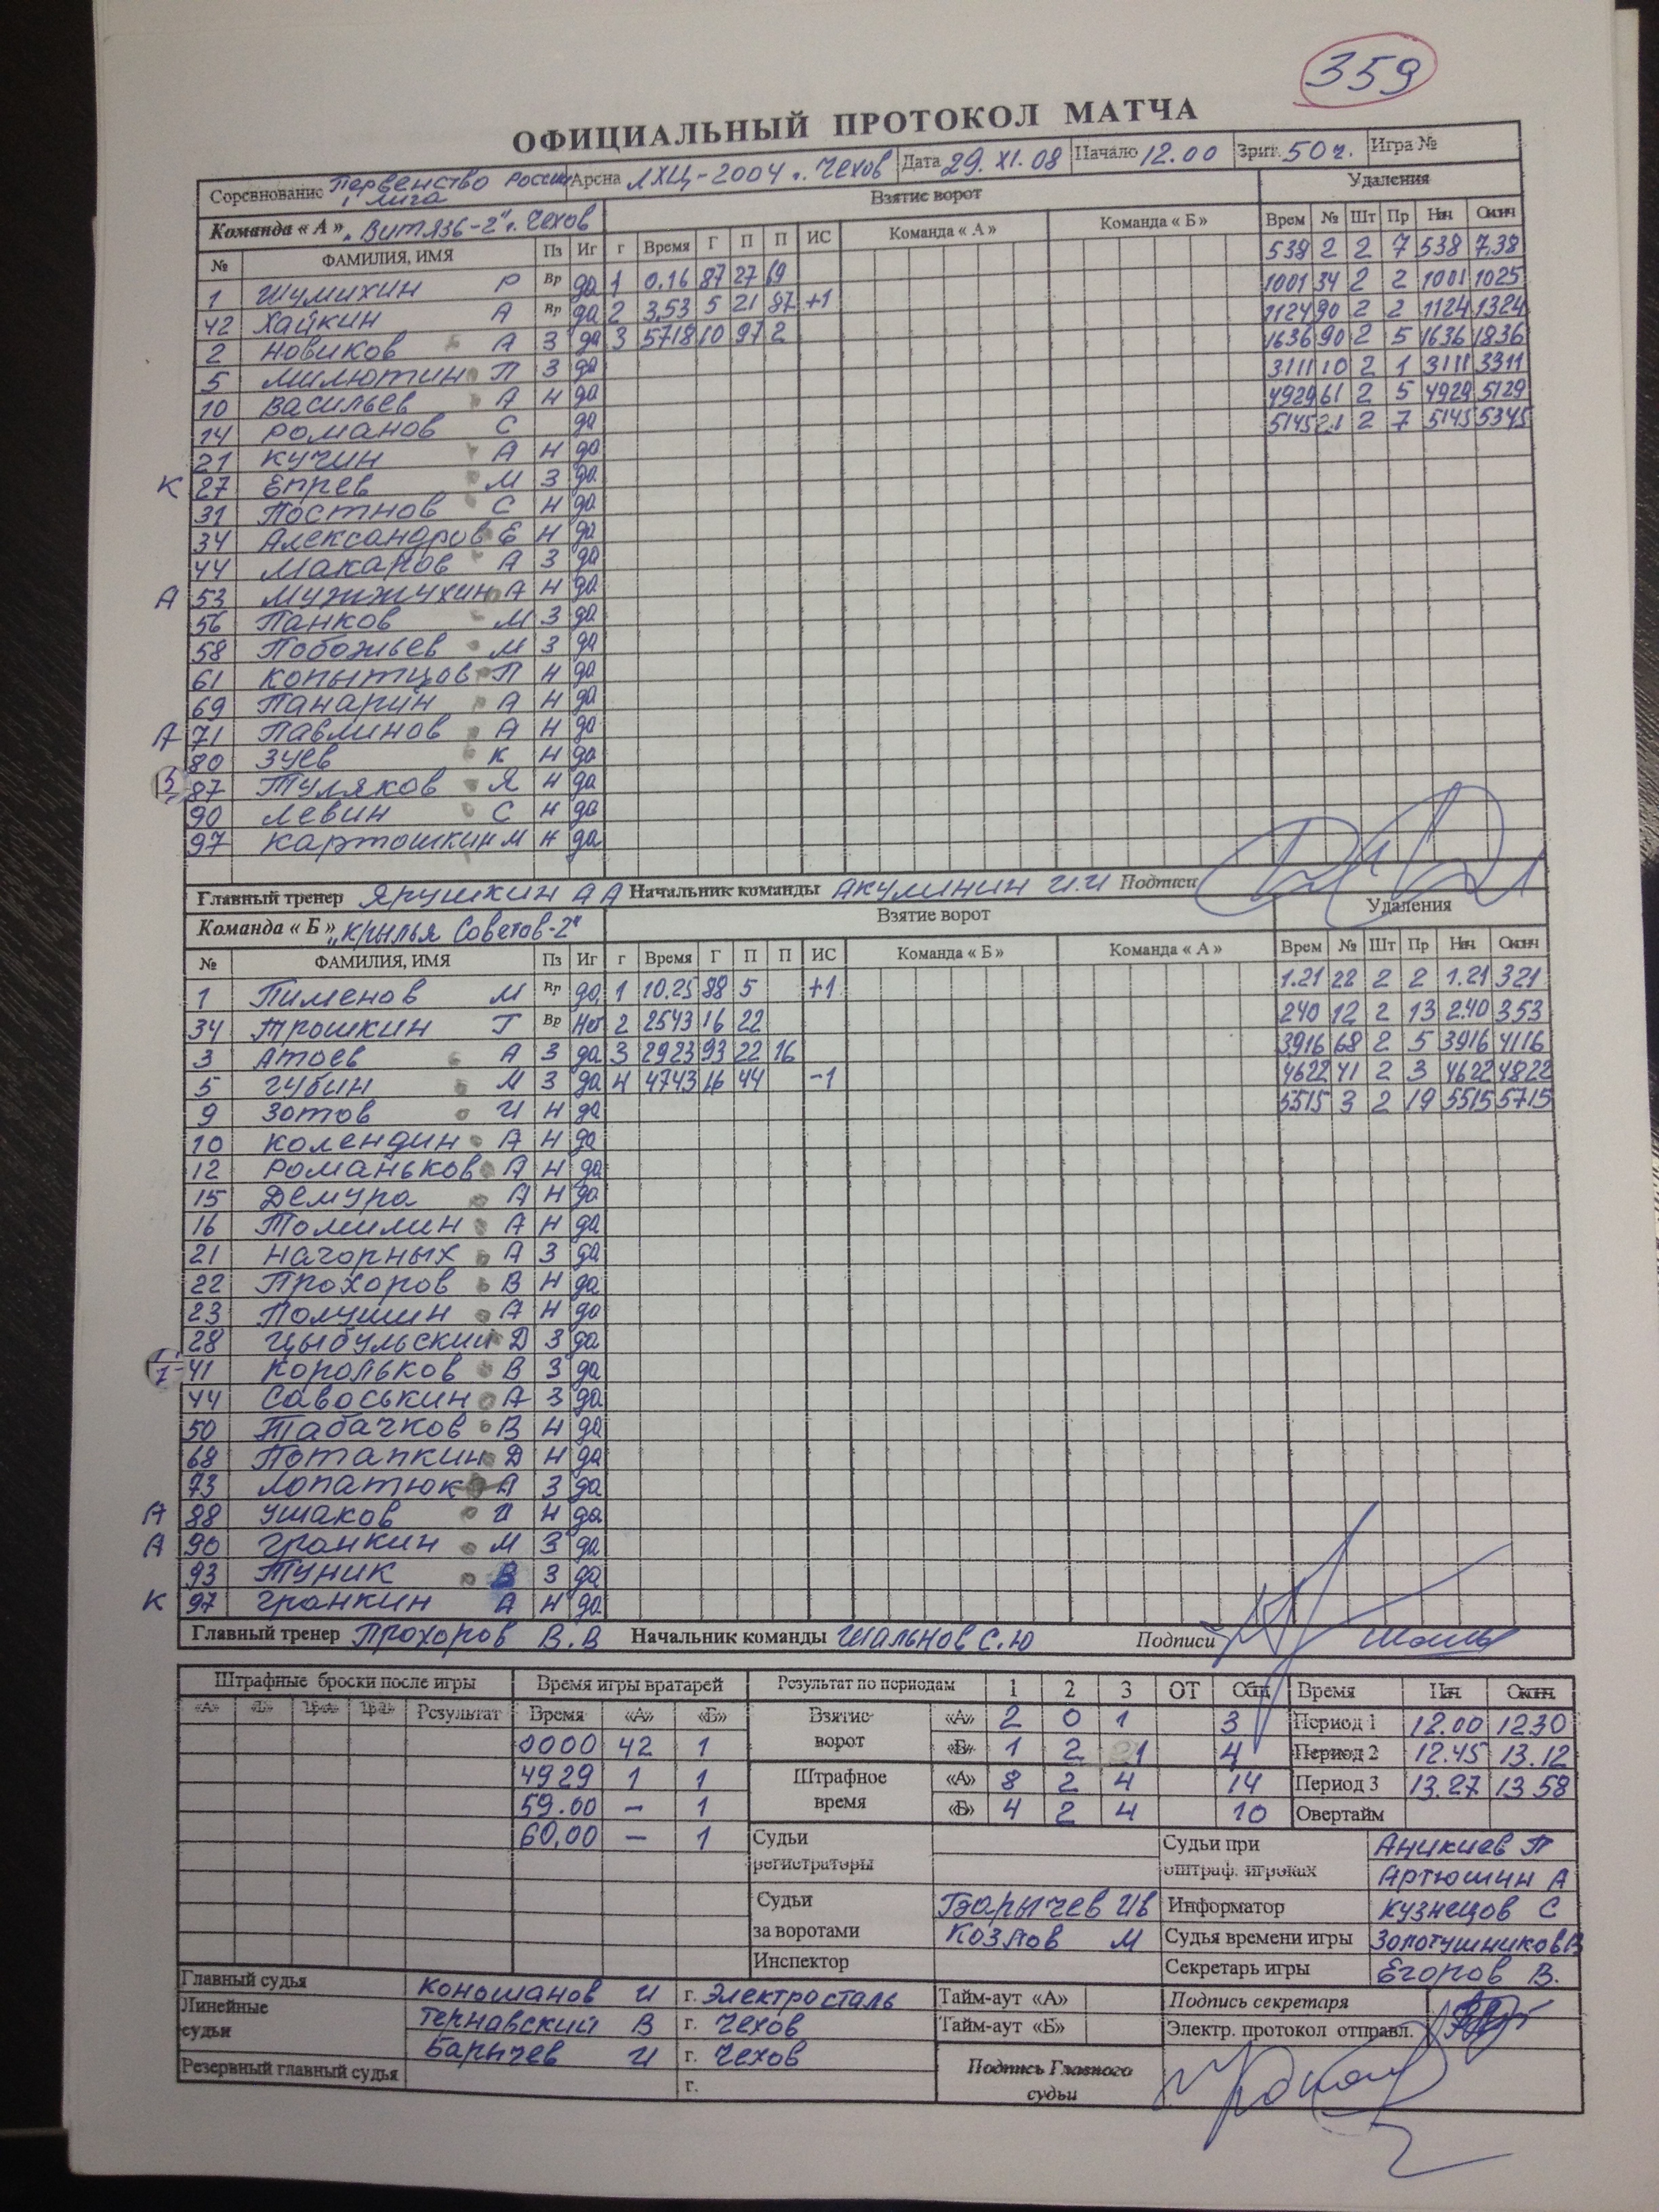 359
ОФИЦИАЛЬНЫЙ ПРОТОКОЛ МАТЧА
Соревнование Первенство России 1 лига Арена ЛХЦ-2004 г. Чехов Дата 29.XI.08 Начало 12.00 Зрит. 50 ч. Игра №
Команда « А » „Витязь-2" г. Чехов Взятие ворот Удаления
№ ФАМИЛИЯ, ИМЯ Пз Иг г Время Г П П ИС Команда « А » Команда « Б » Врем № Шт Пр Нач Оконч
538 2 2 7 538 7.38
1 Шумихин Р Вр да 1 0.16 87 27 69 1001 34 2 2 1001 1025
42 Хайкин А Вр да 2 3.53 5 21 87 +1 1124 90 2 2 1124 1324
2 Новиков А З да 3 5718 10 97 2 1636 90 2 5 1636 1836
5 Милютин П З да 3111 10 2 1 3111 3311
10 Васильев А Н да 4929 61 2 5 4929 5129
14 Романов С да 5145 21 2 7 5145 5345
21 Кучин А Н да
К 27 Епрев М З да
31 Постнов С Н да
34 Александров Е Н да
44 Макаров А З да
А 53 Мужжухин А Н да
56 Панков М З да
58 Побожьев М З да
61 Копытцов П Н да
69 Панарин А Н да
А 71 Павлинов А Н да
80 Зуев К Н да
87 Туляков Я Н да
90 Левин С Н да
97 Картошкин М Н да
Главный тренер Ярушкин А А Начальник команды Акулинин И.И Подписи
Команда « Б » „Крылья Советов-2" Взятие ворот Удаления
№ ФАМИЛИЯ, ИМЯ Пз Иг г Время Г П П ИС Команда « Б » Команда « А » Врем № Шт Пр Нач Оконч
1 Пименов М Вр да 1 10.25 88 5 +1 1.21 22 2 2 1.21 321
34 Трошкин Г Вр Нет 2 2543 16 22 240 12 2 13 2.40 353
3 Атоев А З да 3 2923 93 22 16 3916 68 2 5 3916 4116
5 Губин М З да 4 4743 16 44 -1 4622 41 2 3 4622 4822
9 Зотов И Н да 5515 3 2 19 5515 5715
10 Колендин А Н да
12 Романьков А Н да
15 Демура А Н да
16 Томилин А Н да
21 Нагорных А З да
22 Прохоров В Н да
23 Полушин А Н да
28 Цыбульский Д З да
41 Корольков В З да
44 Савоськин А З да
50 Табачков В Н да
68 Потапкин Д Н да
73 Лопатюк А З да
А 88 Ушаков И Н да
А 90 Гранкин М З да
93 Туник В З да
К 97 Гранкин А Н да
Главный тренер Прохоров В.В Начальник команды Шальнов С.Ю Подписи
Штрафные броски после игры Время игры вратарей Результат по периодам 1 2 3 ОТ Общ Время Нач Оконч
«А» «Б» Вр-А Вр-Б Результат Время «А» «Б» Взятие ворот «А» 2 0 1 3 Период 1 12.00 12.30
0000 42 1 «Б» 1 2 1 4 Период 2 12.45 13.12
4929 1 1 Штрафное время «А» 8 2 4 14 Период 3 13.27 13.58
59.00 – 1 «Б» 4 2 4 10 Овертайм
60,00 – 1 Судьи регистраторы Судьи при оштраф. игроках Аникиев П
Артюшин А
Судьи за воротами Барычев Ив Информатор Кузнецов С
Козлов М Судья времени игры Золотушников В
Инспектор Секретарь игры Егоров В.
Главный судья Коношанов И г. Электросталь Тайм-аут «А» Подпись секретаря
Линейные судьи Тернавский В г. Чехов Тайм-аут «Б» Электр. протокол отправл.
Барычев И г. Чехов Подпись Главного судьи
Резервный главный судья г.